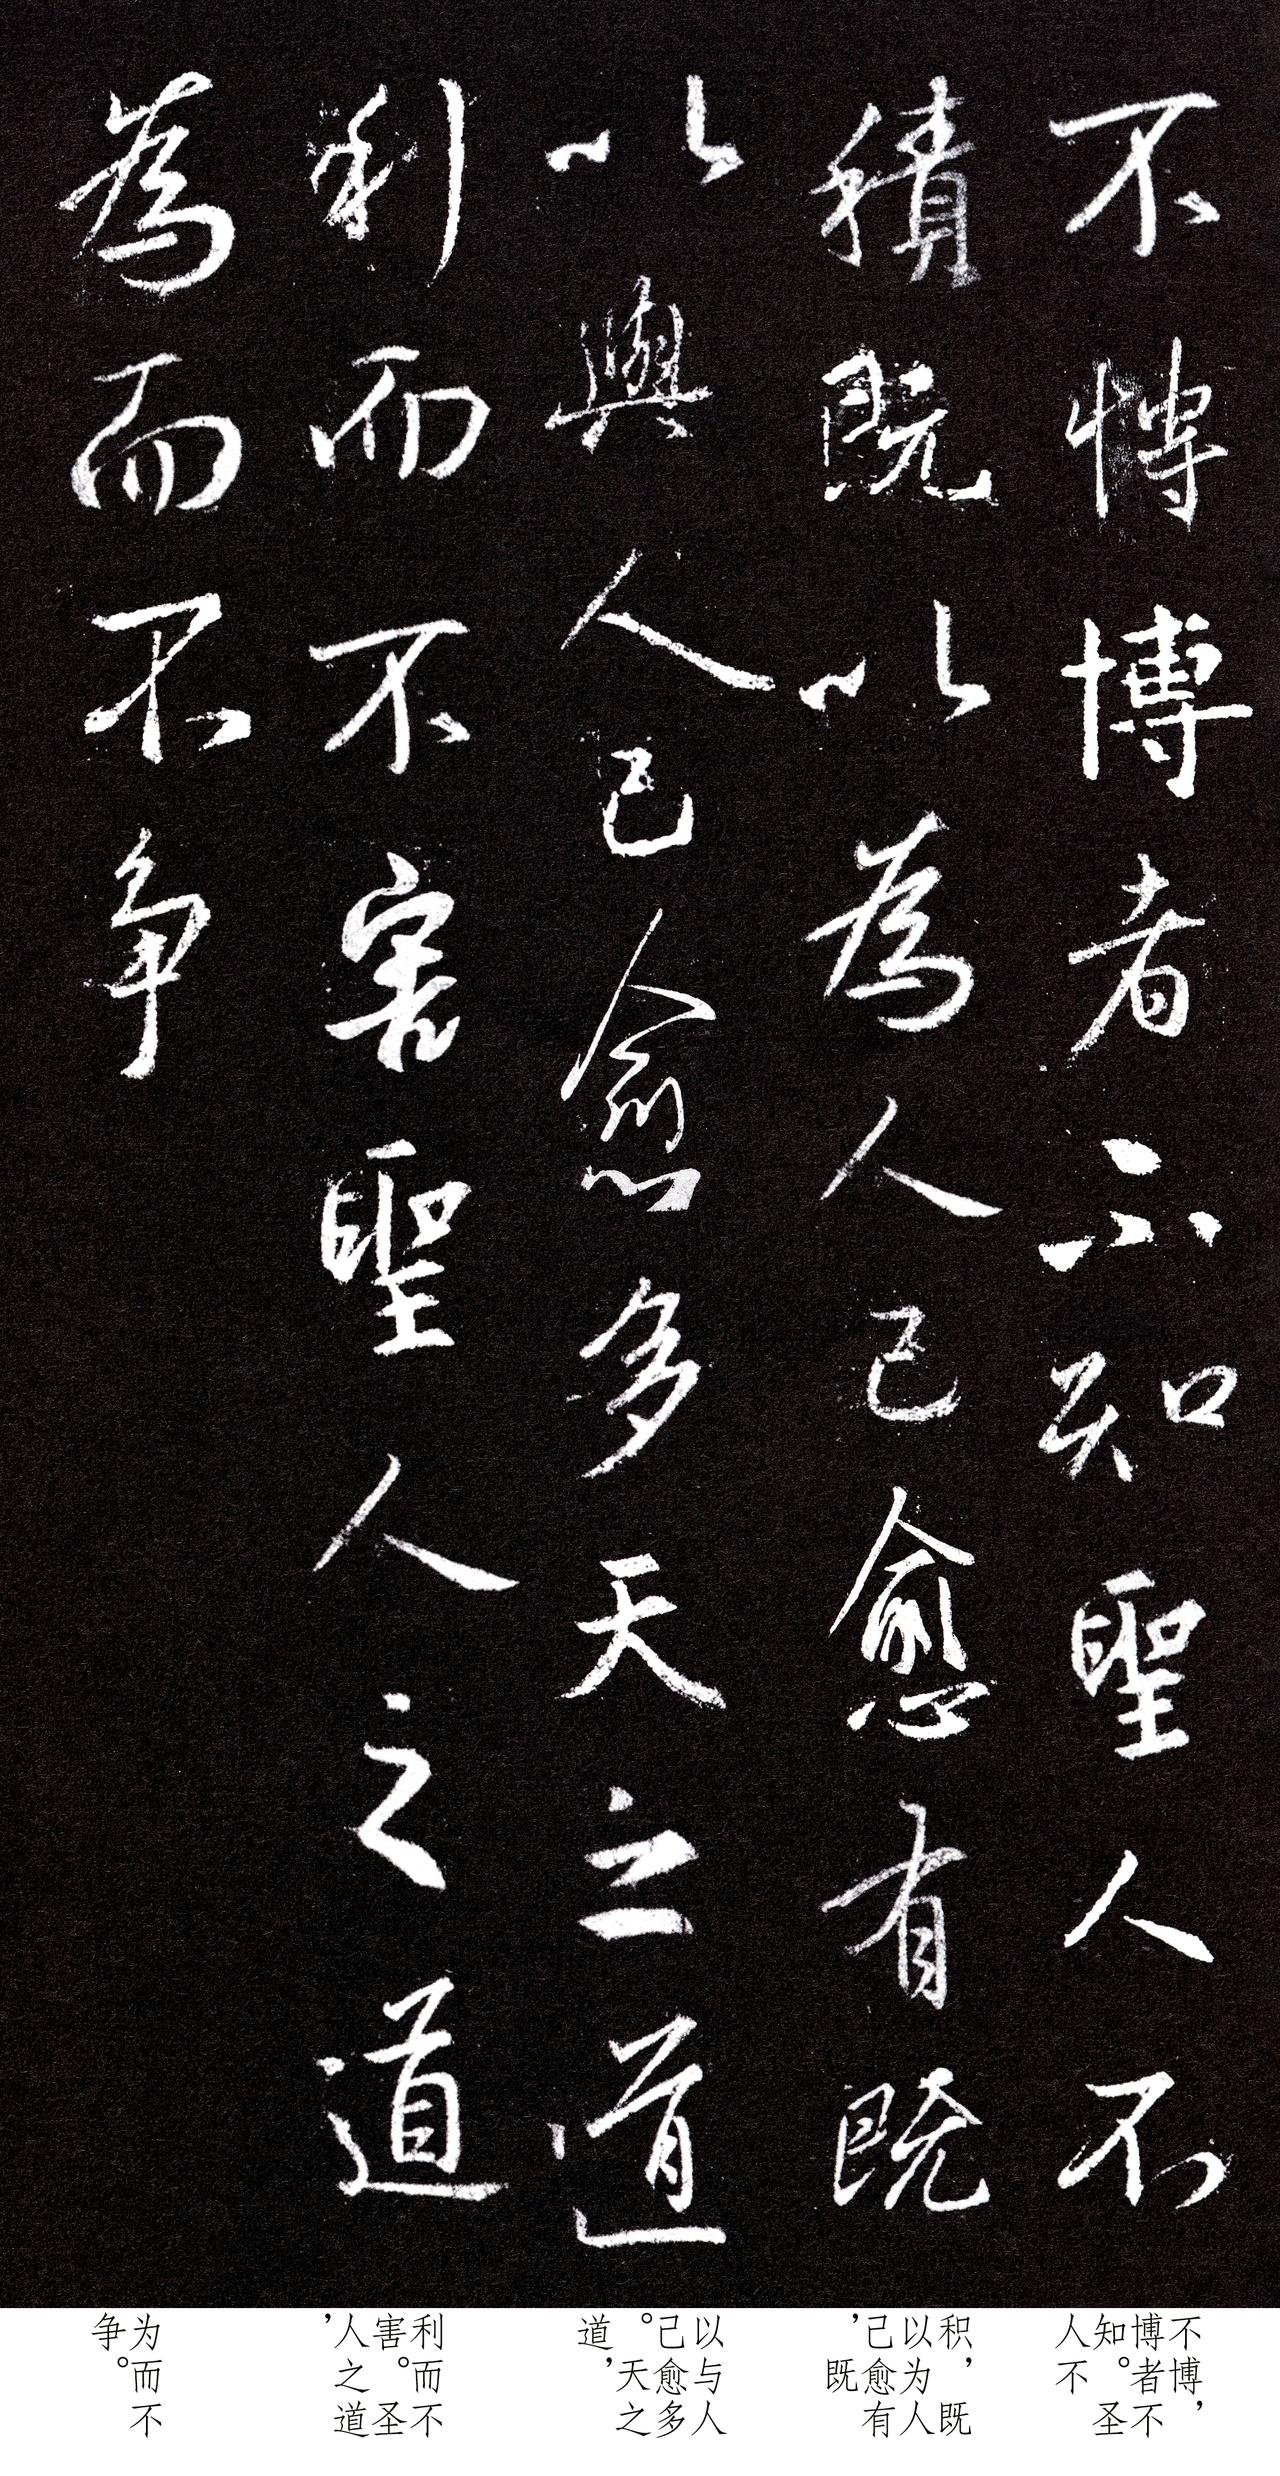 不博博者不知聖人不
積既以為人己愈有既
以與人己愈多天之道
利而不害聖人之道
為而不争
不博，
博者不
知。圣
人不
积，既
以为人
己愈有
，既
以与人
己愈多
。天之
道，
利而不
害。圣
人之道
，
为而不
争。